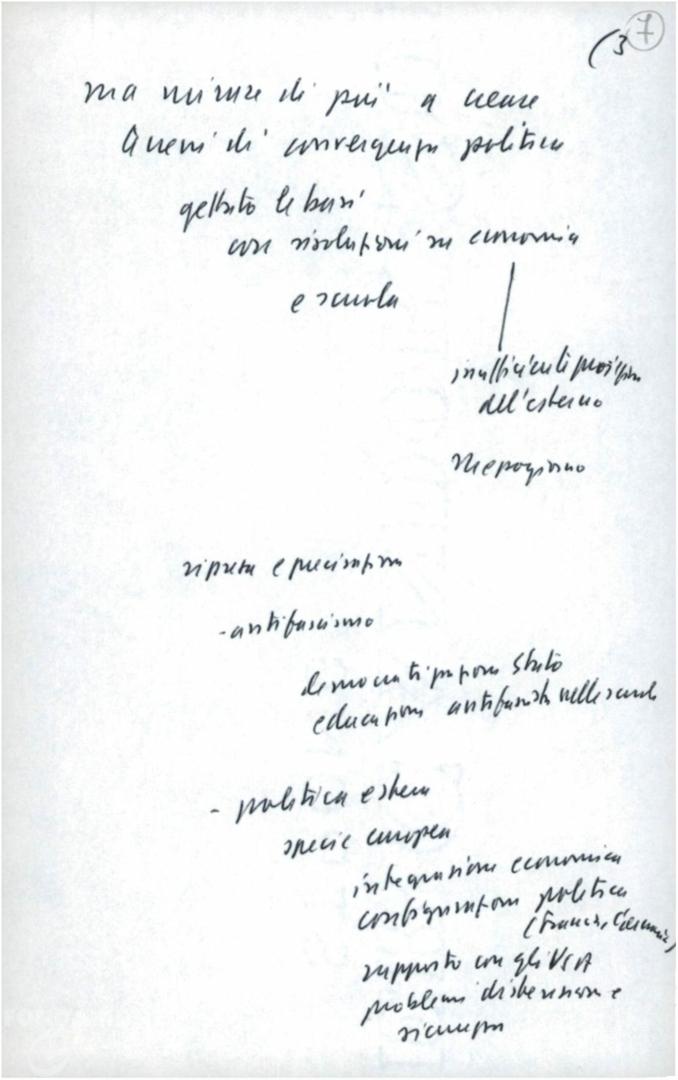 (3 7
ma mirare di più a creare
Areni di convergenza politica
gettato le basi
con risoluzioni su economia
e scuola
insufficienti proiezioni
dell'esterno
Mezzogiorno
ripresa e precisazione
- antifascismo
democratizzazione Stato
educazione antifascista nelle scuole
- politica estera
specie europea
integrazione economica
configurazione politica
(Francia, Germania)
rapporto con gli USA
problemi distensione e
sicurezza